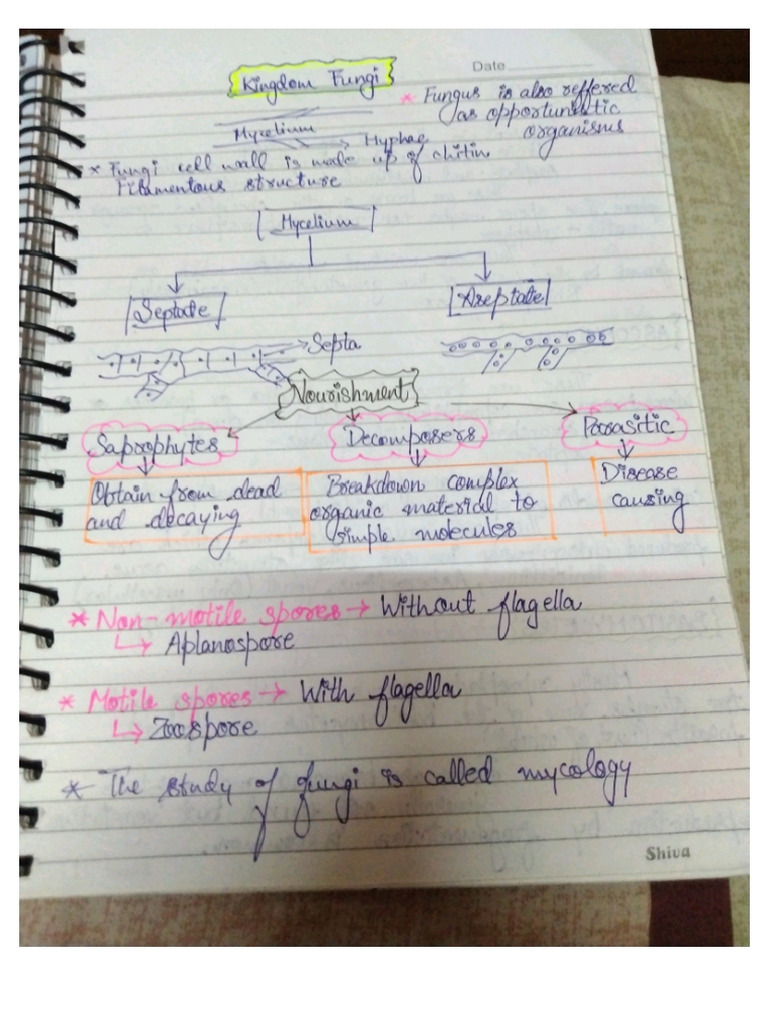 Date
Kingdom Fungi
* Fungus is also reffered
as opportunistic
organisms
Mycelium
Hyphae
* Fungi cell wall is made up of chitin
Filamentous structure
Mycelium
Septate
Aseptate
Septa
Nourishment
Saprophytes
Decomposers
Parasitic
Obtain from dead
and decaying
Breakdown complex
organic material to
simple molecules
Disease
causing
* Non-motile spores → Without flagella
↳ Aplanospore
* Motile spores → With flagella
↳ Zoospore
* The study of fungi is called mycology
Shiva